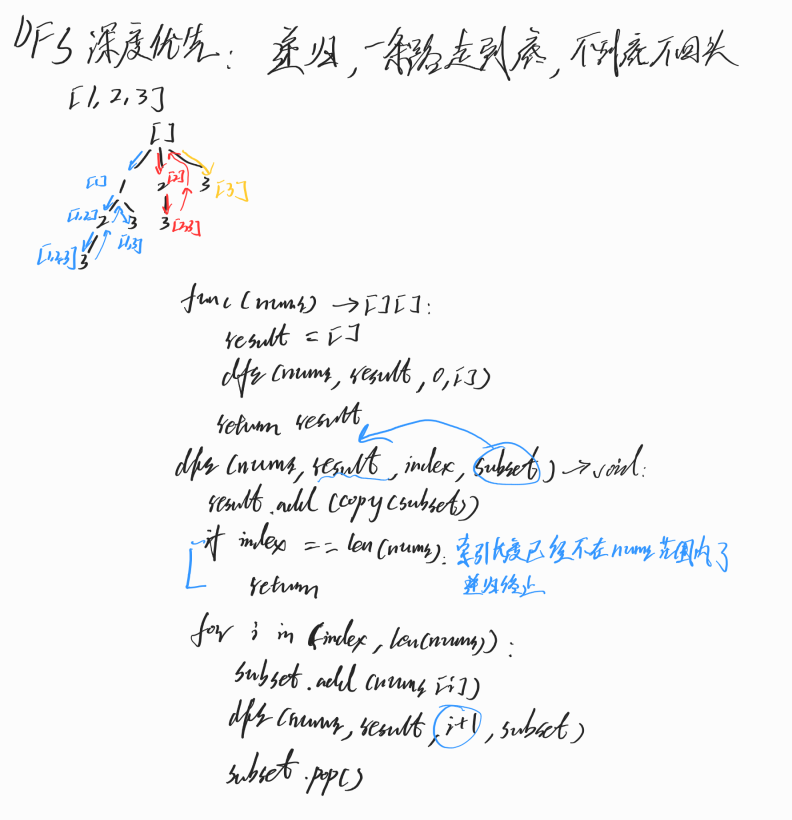 DFS 深度优先: 递归,一条路走到底,不到底不回头
[1,2,3]
[]
[1] 1 2 [2] 3 [3]
[1,2] 2 3 [1,3] 3 [2,3]
[1,2,3] 3
func (nums) →[][]:
result = []
dfs (nums, result, 0, [])
return result
dfs (nums, result, index, subset) → void:
result.add (copy(subset))
if index == len(nums): 索引长度已经不在nums范围内了
return 递归终止
for i in (index, len(nums)):
subset.add (nums[i])
dfs (nums, result, i+1, subset)
subset.pop()